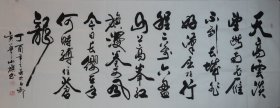 天高雲淡
望斷南飛雁
不到長城非
好漢屈指行
程二万六盤
山上高峰紅
旗漫卷西風
今日長纓在手
何時縛住蒼
龍
丁酉年